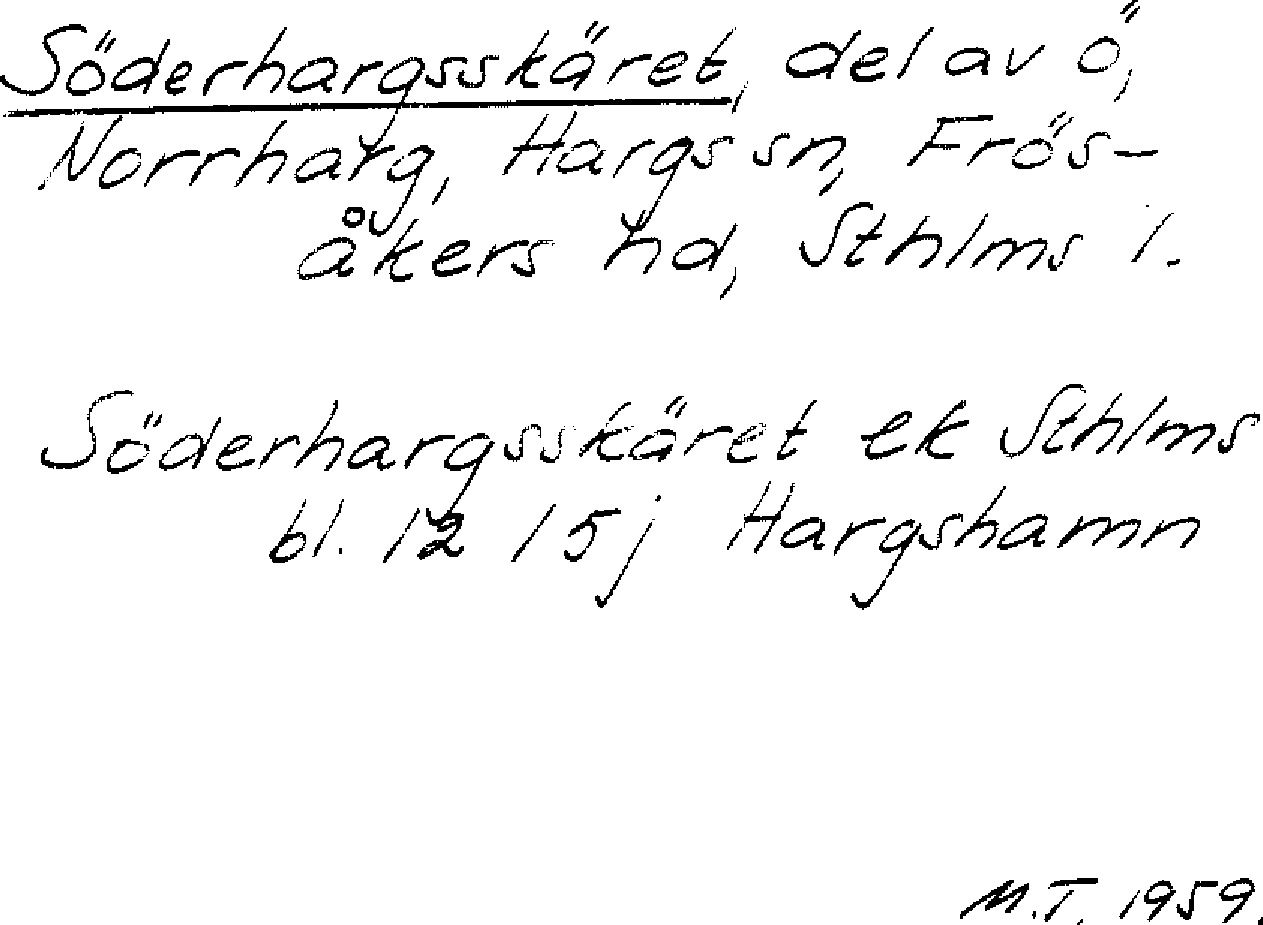 Söderhargsskäret, del av ö,
Norrharg, Hargs sn, Frös-
åkers hd, Sthlms l.
Söderhargsskäret ek Sthlms
bl. 12 I 5j Hargshamn
M.T. 1959.